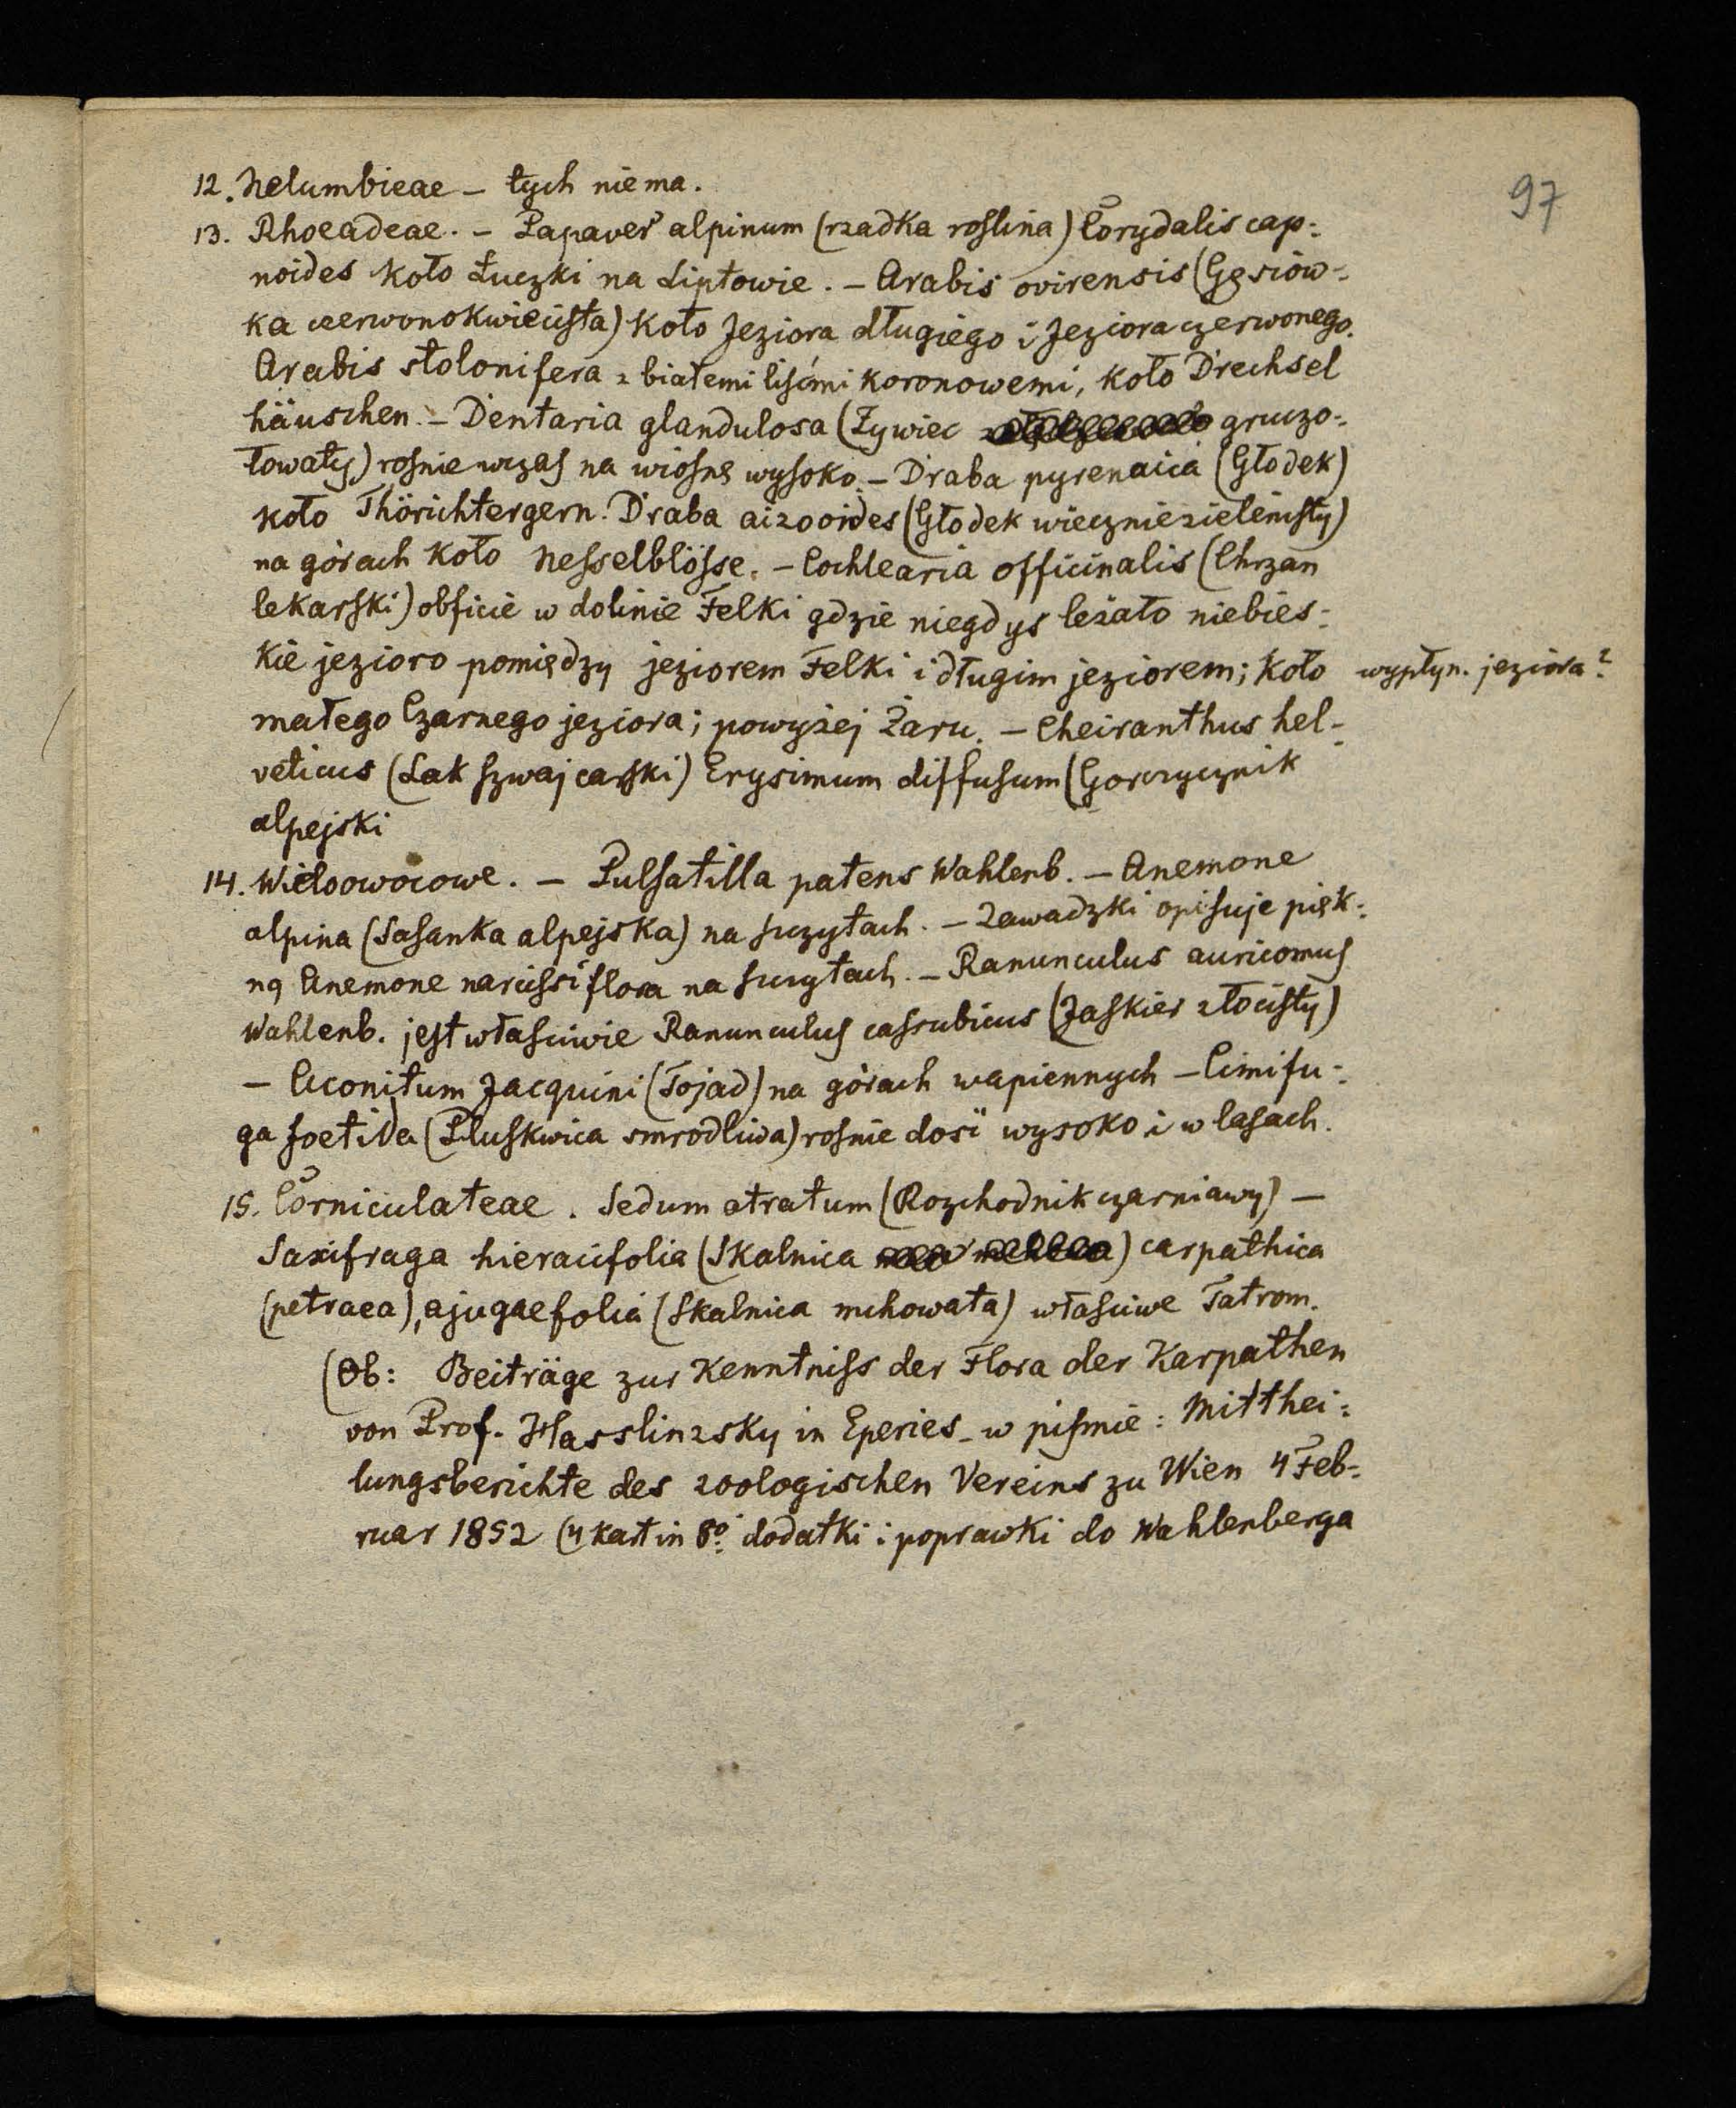 97
12. Nelumbieae – tych niema.
13. Rhoeadeae. – Papaver alpinum (rzadka roslina) Corydalis cap-
noides koło Łuczki na Liptowie. – Arabis ovirensis (Gęsiów-
ka czerwonokwiecista) koło Jeziora długiego i Jeziora czerwonego.
Arabis stolonifera z białemi liśćmi koronowemi, koło Drechsel
häuschen. – Dentaria glandulosa (Żywiec gruczo-
łowaty) rosnie wczas na wiosnę wysoko. – Draba pyrenaica (Głodek)
koło Thörichtergern. Draba aizooides (Głodek wieczniezielenisty)
na górach koło Nesselblösse. – Cochlearia officinalis (Chrzan
lekarski) obficie w dolinie Felki gdzie niegdys leżało niebies-
kie jezioro pomiędzy jeziorem Felki i długim jeziorem; koło wypłyn. jeziora?
małego Czarnego jeziora; powyżej Żaru. – Cheiranthus hel-
veticus (Lak szwajcarski) Erysimum diffusum (Gorczycznik
alpejski
14. Wieloowocowe. – Pulsatilla patens Wahlenb. – Anemone
alpina (Sasanka alpejska) na szczytach. – Zawadzki opisuje pięk-
ną Anemone narcissiflora na szczytach. – Ranunculus auricomus
Wahlenb. jest własciwie Ranunculus cassubicus (Jaskier złocisty)
– Aconitum Jacquini (Tojad) na górach wapiennych – Cimifu-
ga foetida (Pluskwica smrodliwa) rosnie dosć wysoko i w lasach.
15. Corniculateae. Sedum atratum (Rozchodnik czarniawy) –
Saxifraga hieracifolia (Skalnica ) carpathica
(petraea), ajugaefolia (Skalnica mchowata) własciwe Tatrom.
(Ob: Beiträge zur Kenntniss der Flora der Karpathen
von Prof. Hasslinzsky in Eperies – w pismie: Mitthei-
lungsberichte des zoologischen Vereins zu Wien 4 Feb-
ruar 1852 (4 kart in 8º dodatki i poprawki do Wahlenberga